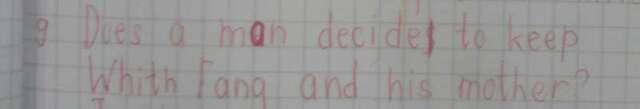 9 Does a man decides to keep
Whith Fang and his mother?